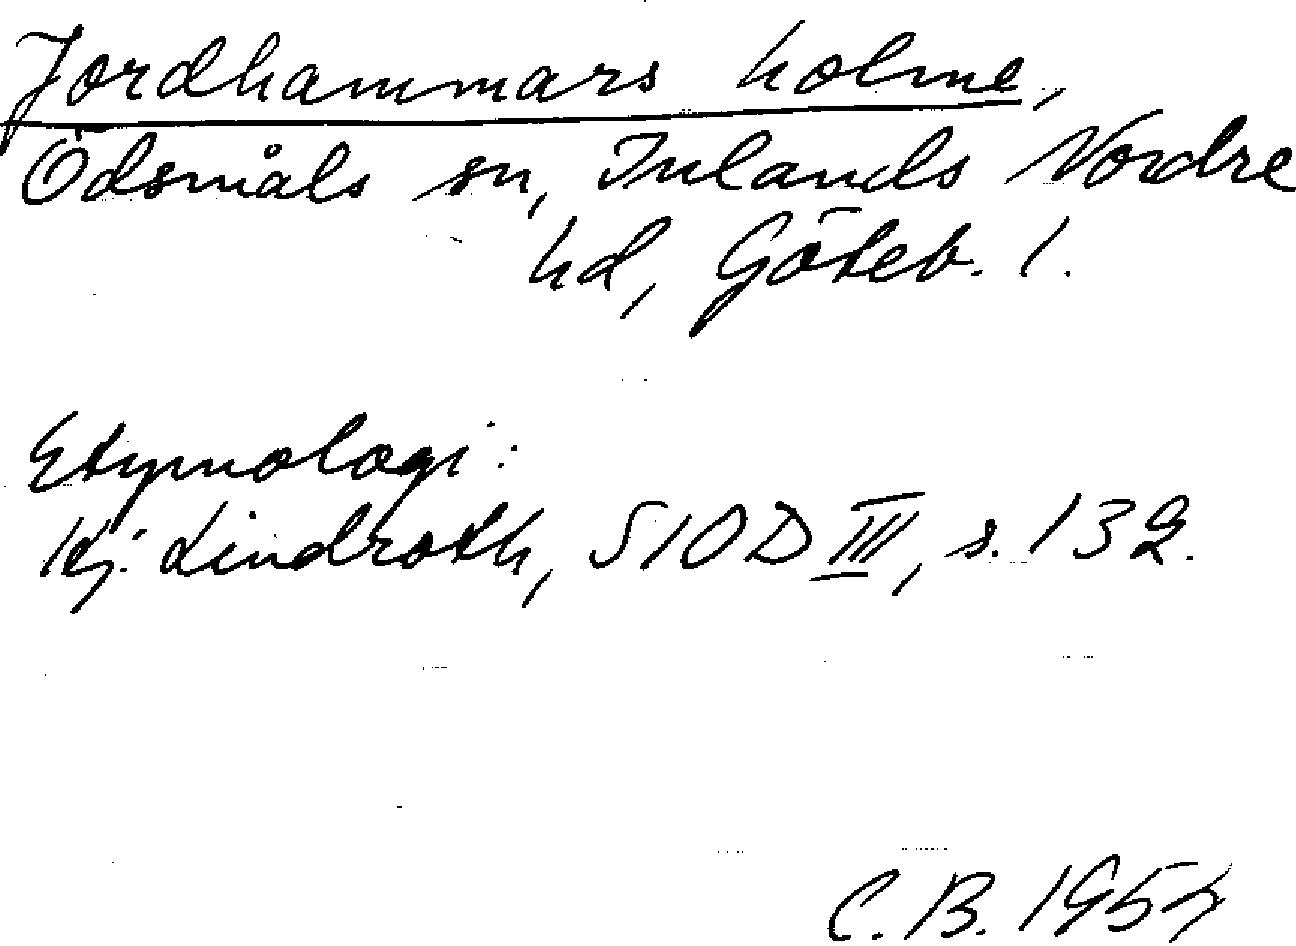 Jordhammars holme,
Ödsmåls sn, Inlands Nordre
hd, Göteb. l.
Etymologi:
Hj. Lindroth, SIOD III, s. 132.
C.B. 1957